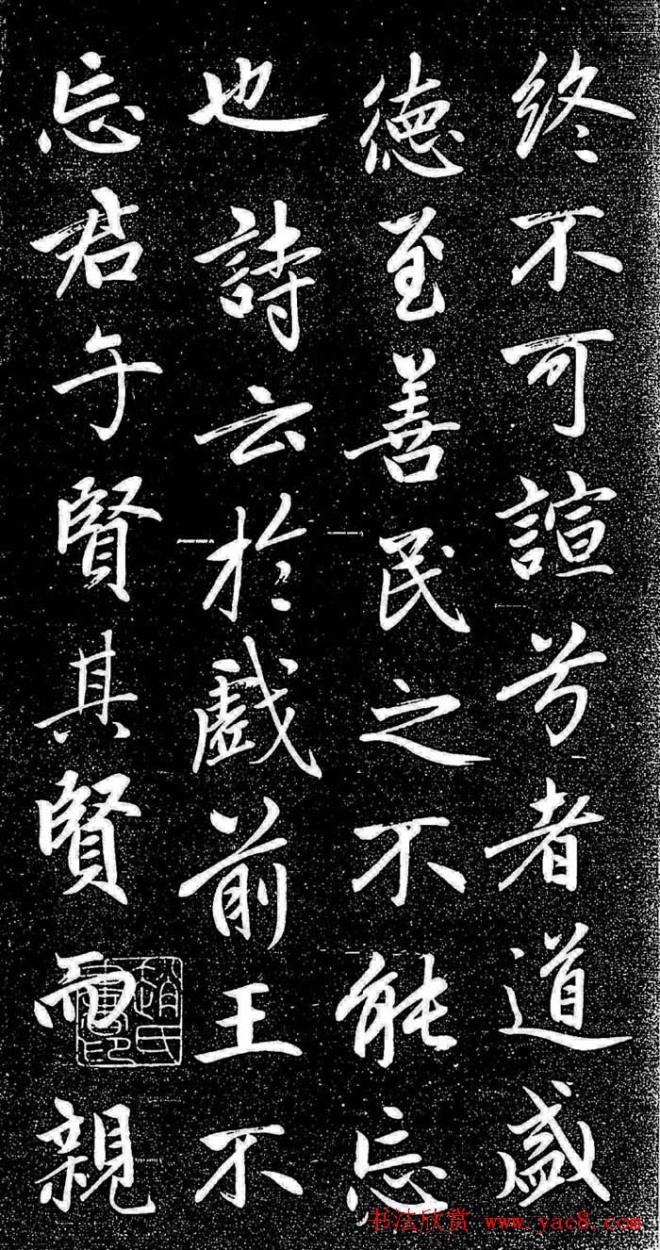 終不可諠兮者道盛
德至善民之不能忘
也詩云於戲前王不
忘君子賢其賢而親
趙氏書印
书法欣赏 www.yac8.com